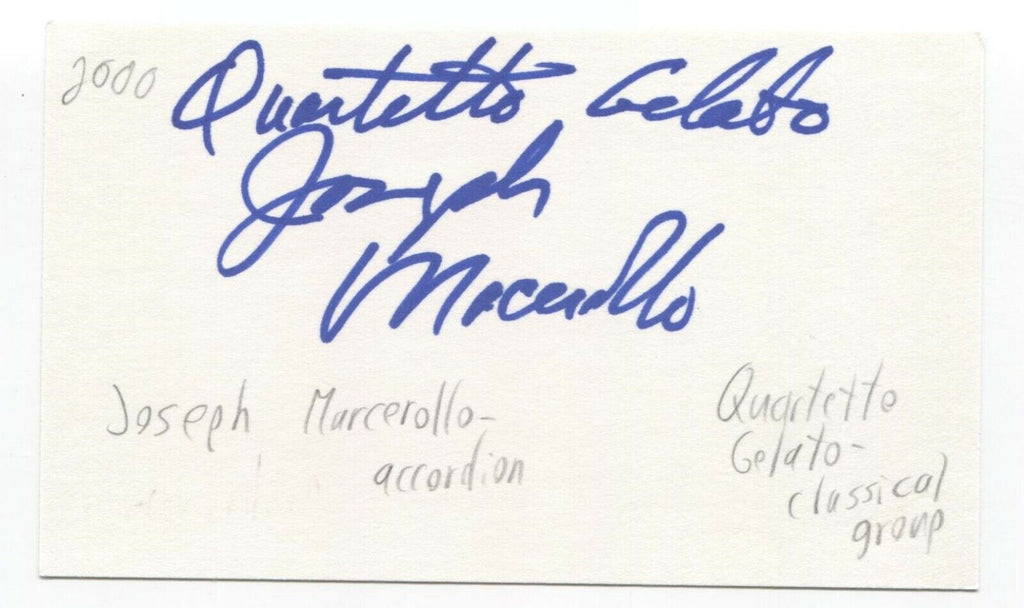 2000
Quartetto Gelato
Joseph
Macerollo
Joseph Marcerollo-
accordion
Quartetto
Gelato-
classical
group